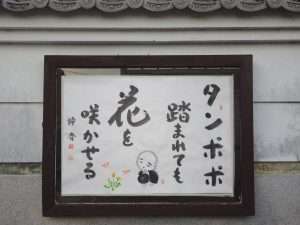 タンポポ
踏まれても
花を
咲かせる